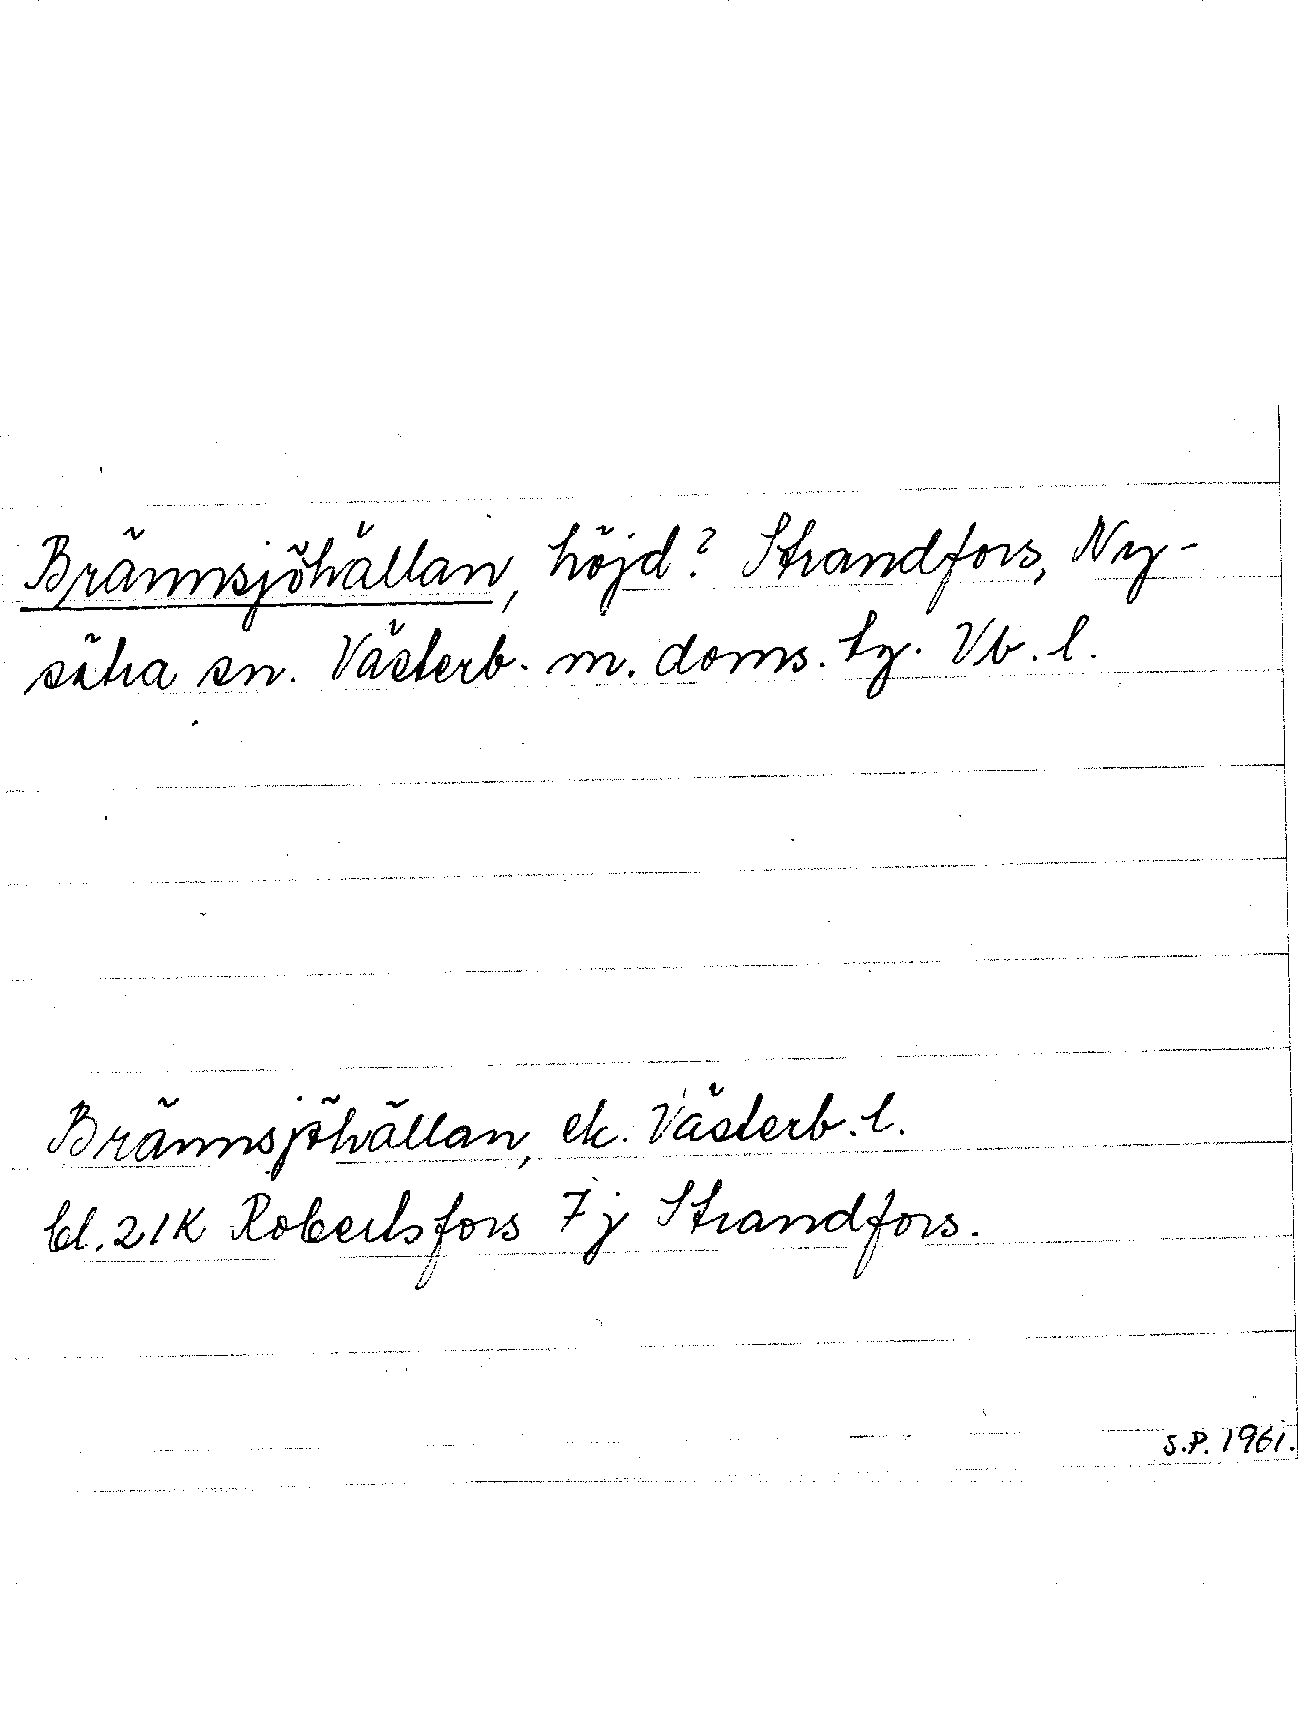 Brännsjöhällan, höjd? Strandfors, Ny-
sätra sn. Västerb. m. doms. tg. Vb. l.
Brännsjöhällan, ek. Västerb. l.
bl. 21K Robertsfors 7j Strandfors.
S.P. 1961.